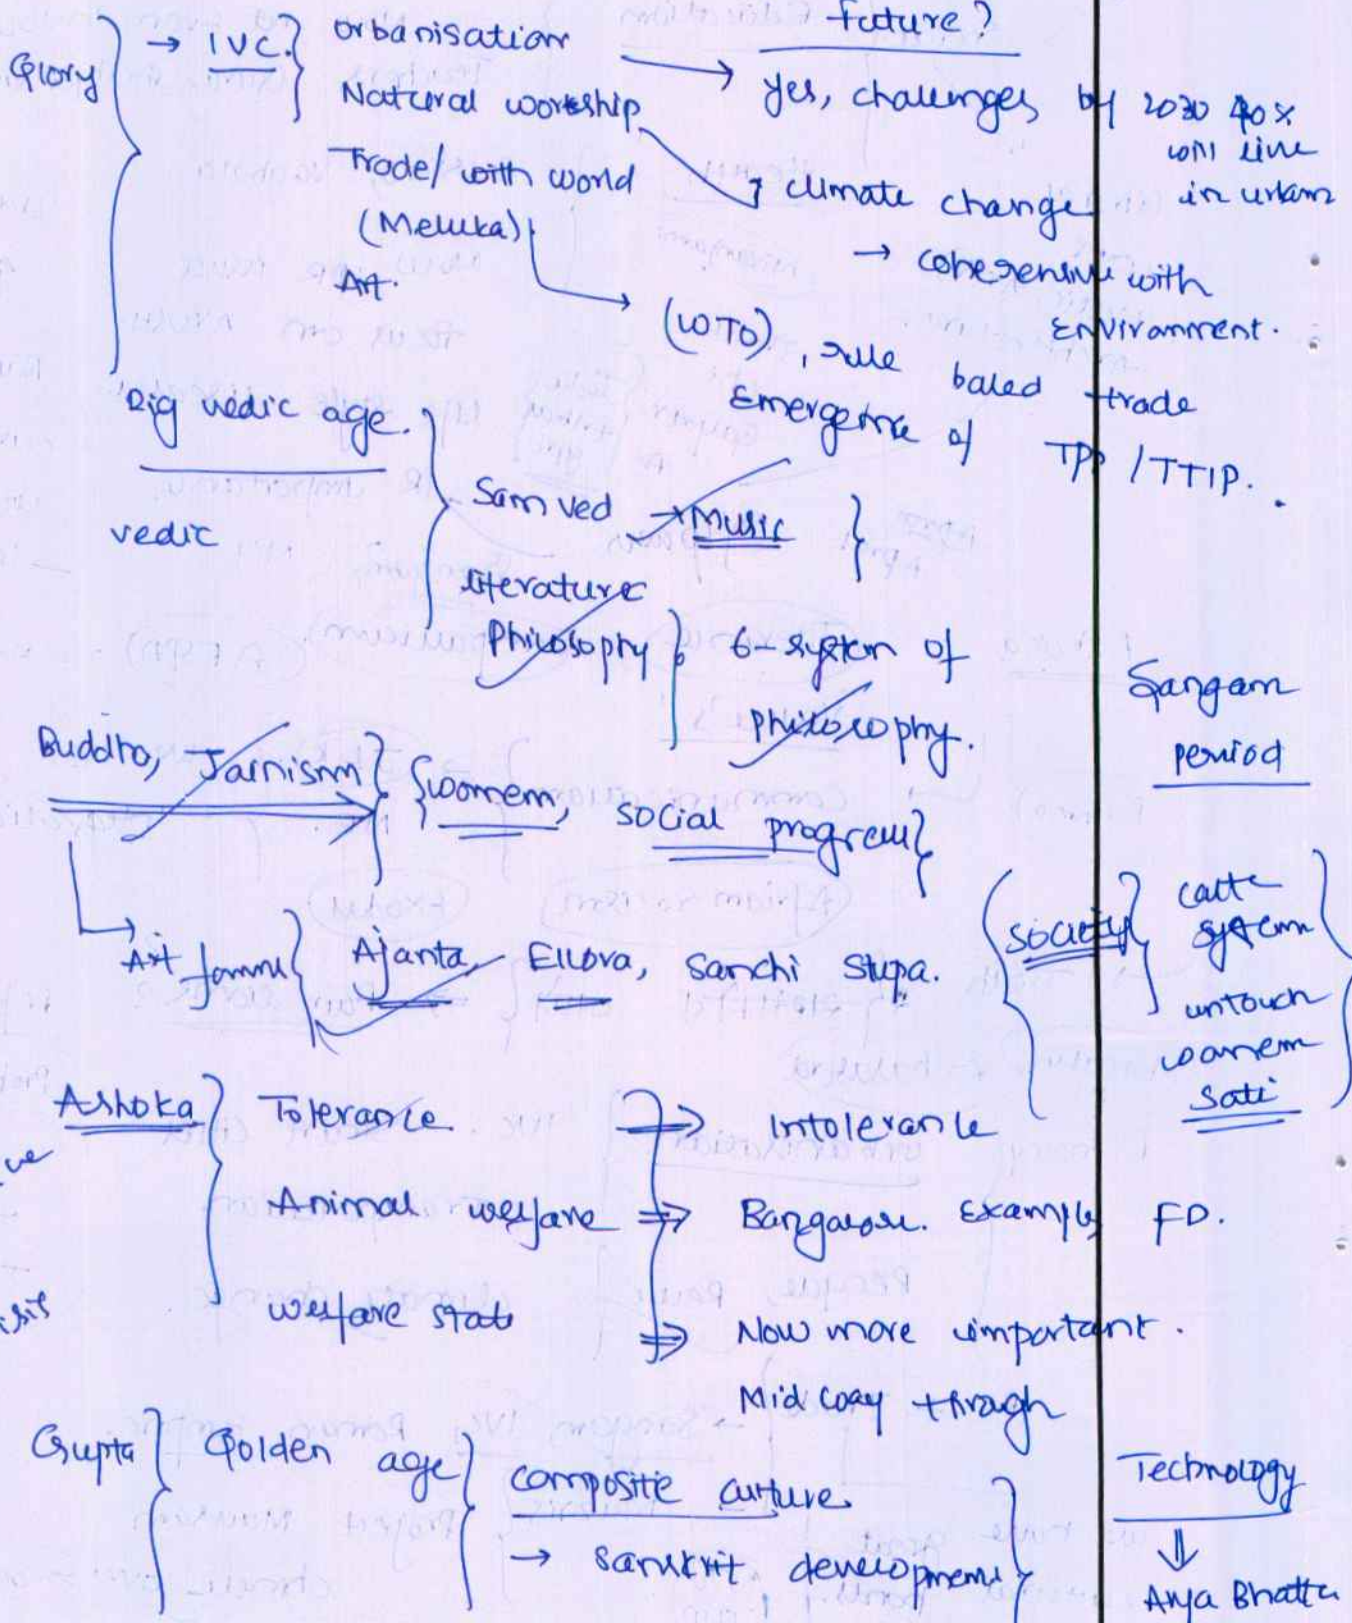 Glory → IVC. Urbanisation → Future?
Natural worship yes, challenges by 2030 40%
will live
in urban
Trade/with world → climate change
(Meluka) → coherensive with
Environment.
Art.
(WTO), rule based trade
Emergence of TPP / TTIP.
Rig vedic age.
vedic
Sam ved → Music
literature
Philosophy 6-system of
philosophy.
Sangam
period
Buddho, Jainism women, social program
→ Art forms Ajanta, Ellora, Sanchi Stupa.
society caste
system
untouch
women
Sati
Ashoka Tolerance ⇒ Intolerance
Animal welfare ⇒ Bangalore. Example FD.
welfare state ⇒ Now more important.
Mid way through
Gupta Golden age composite culture
→ sanskrit, development
Technology
⇓
Arya Bhatta